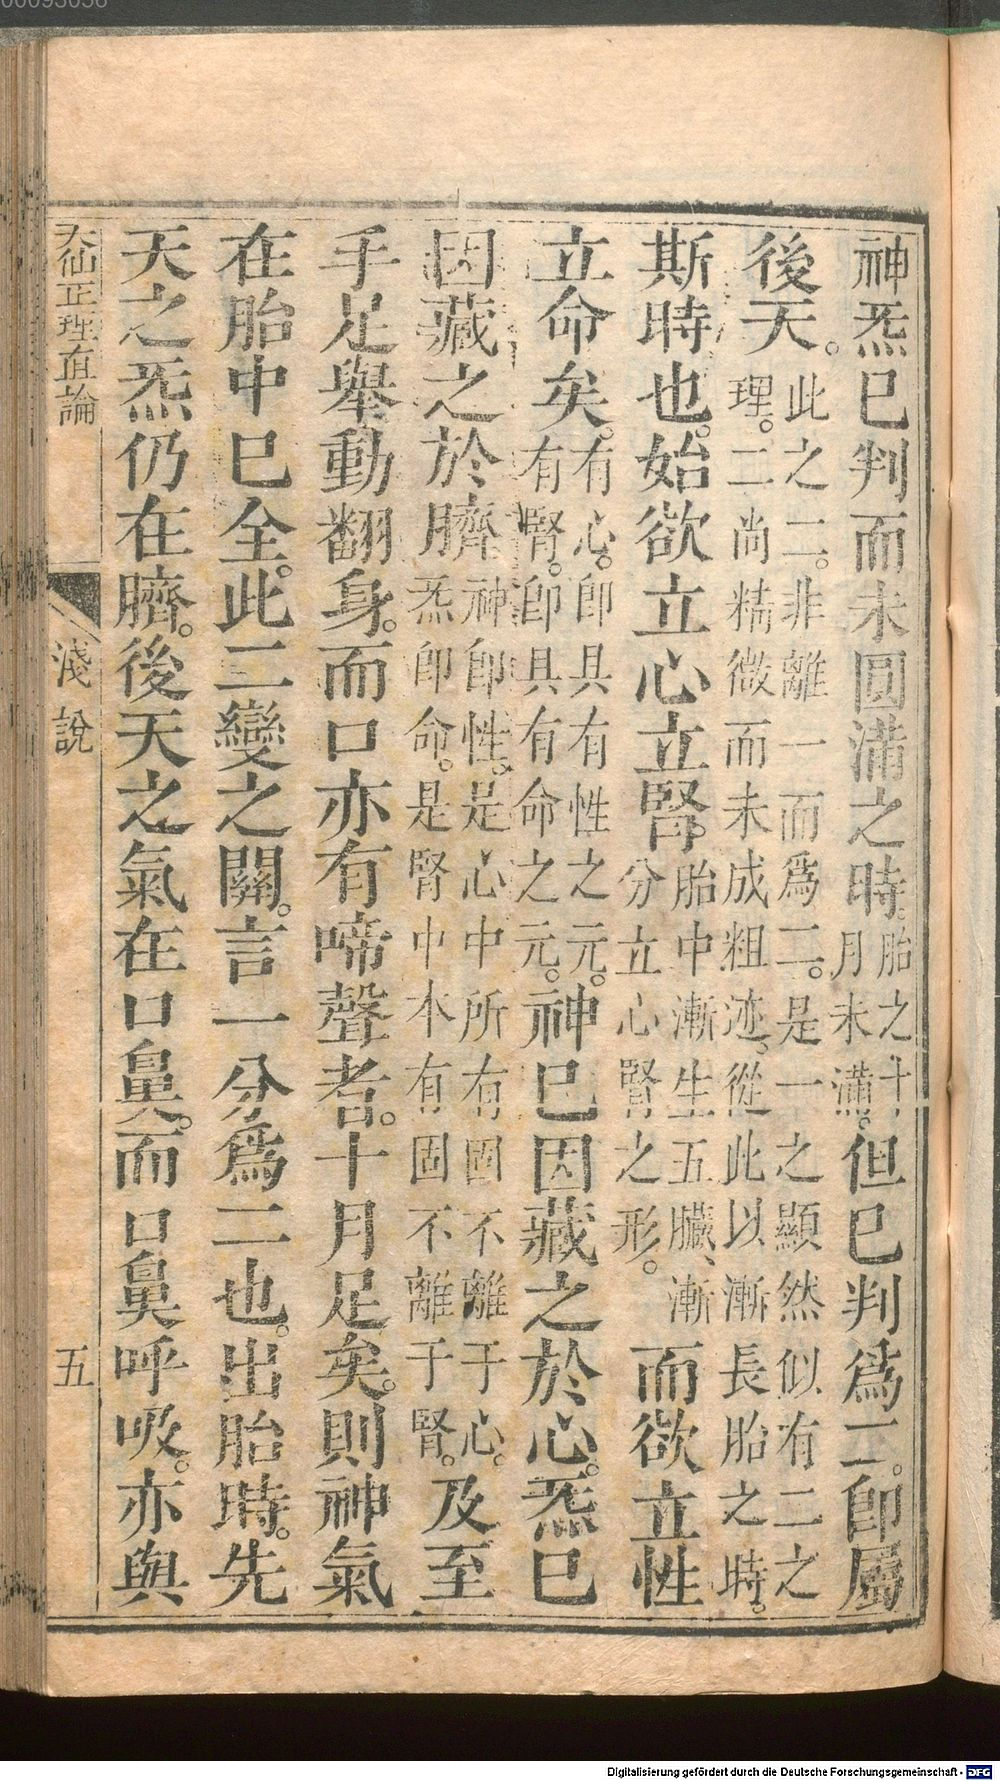 00093058
神炁已判而未圓滿之時。胎之十月未滿。但已判爲二。卽屬
後天。此之二。非離一而爲二。是一之顯然似有二之理。二尚精微而未成粗迹。從此以漸長胎之時。
斯時也。始欲立心立腎。胎中漸生五臟、漸分立心腎之形。而欲立性
立命矣。有心。卽具有性之元。有腎。卽具有命之元。神已因藏之於心。炁已
因藏之於臍。神卽性。是心中所有固不離于心。炁卽命。是腎中本有固不離于腎。及至
手足舉動翻身。而口亦有啼聲者。十月足矣。則神氣
在胎中已全。此二變之關。言一分爲二也。出胎時。先
天之炁仍在臍。後天之氣在口鼻。而口鼻呼吸。亦與
天仙正理直論 淺說 五
Digitalisierung gefördert durch die Deutsche Forschungsgemeinschaft - DFG